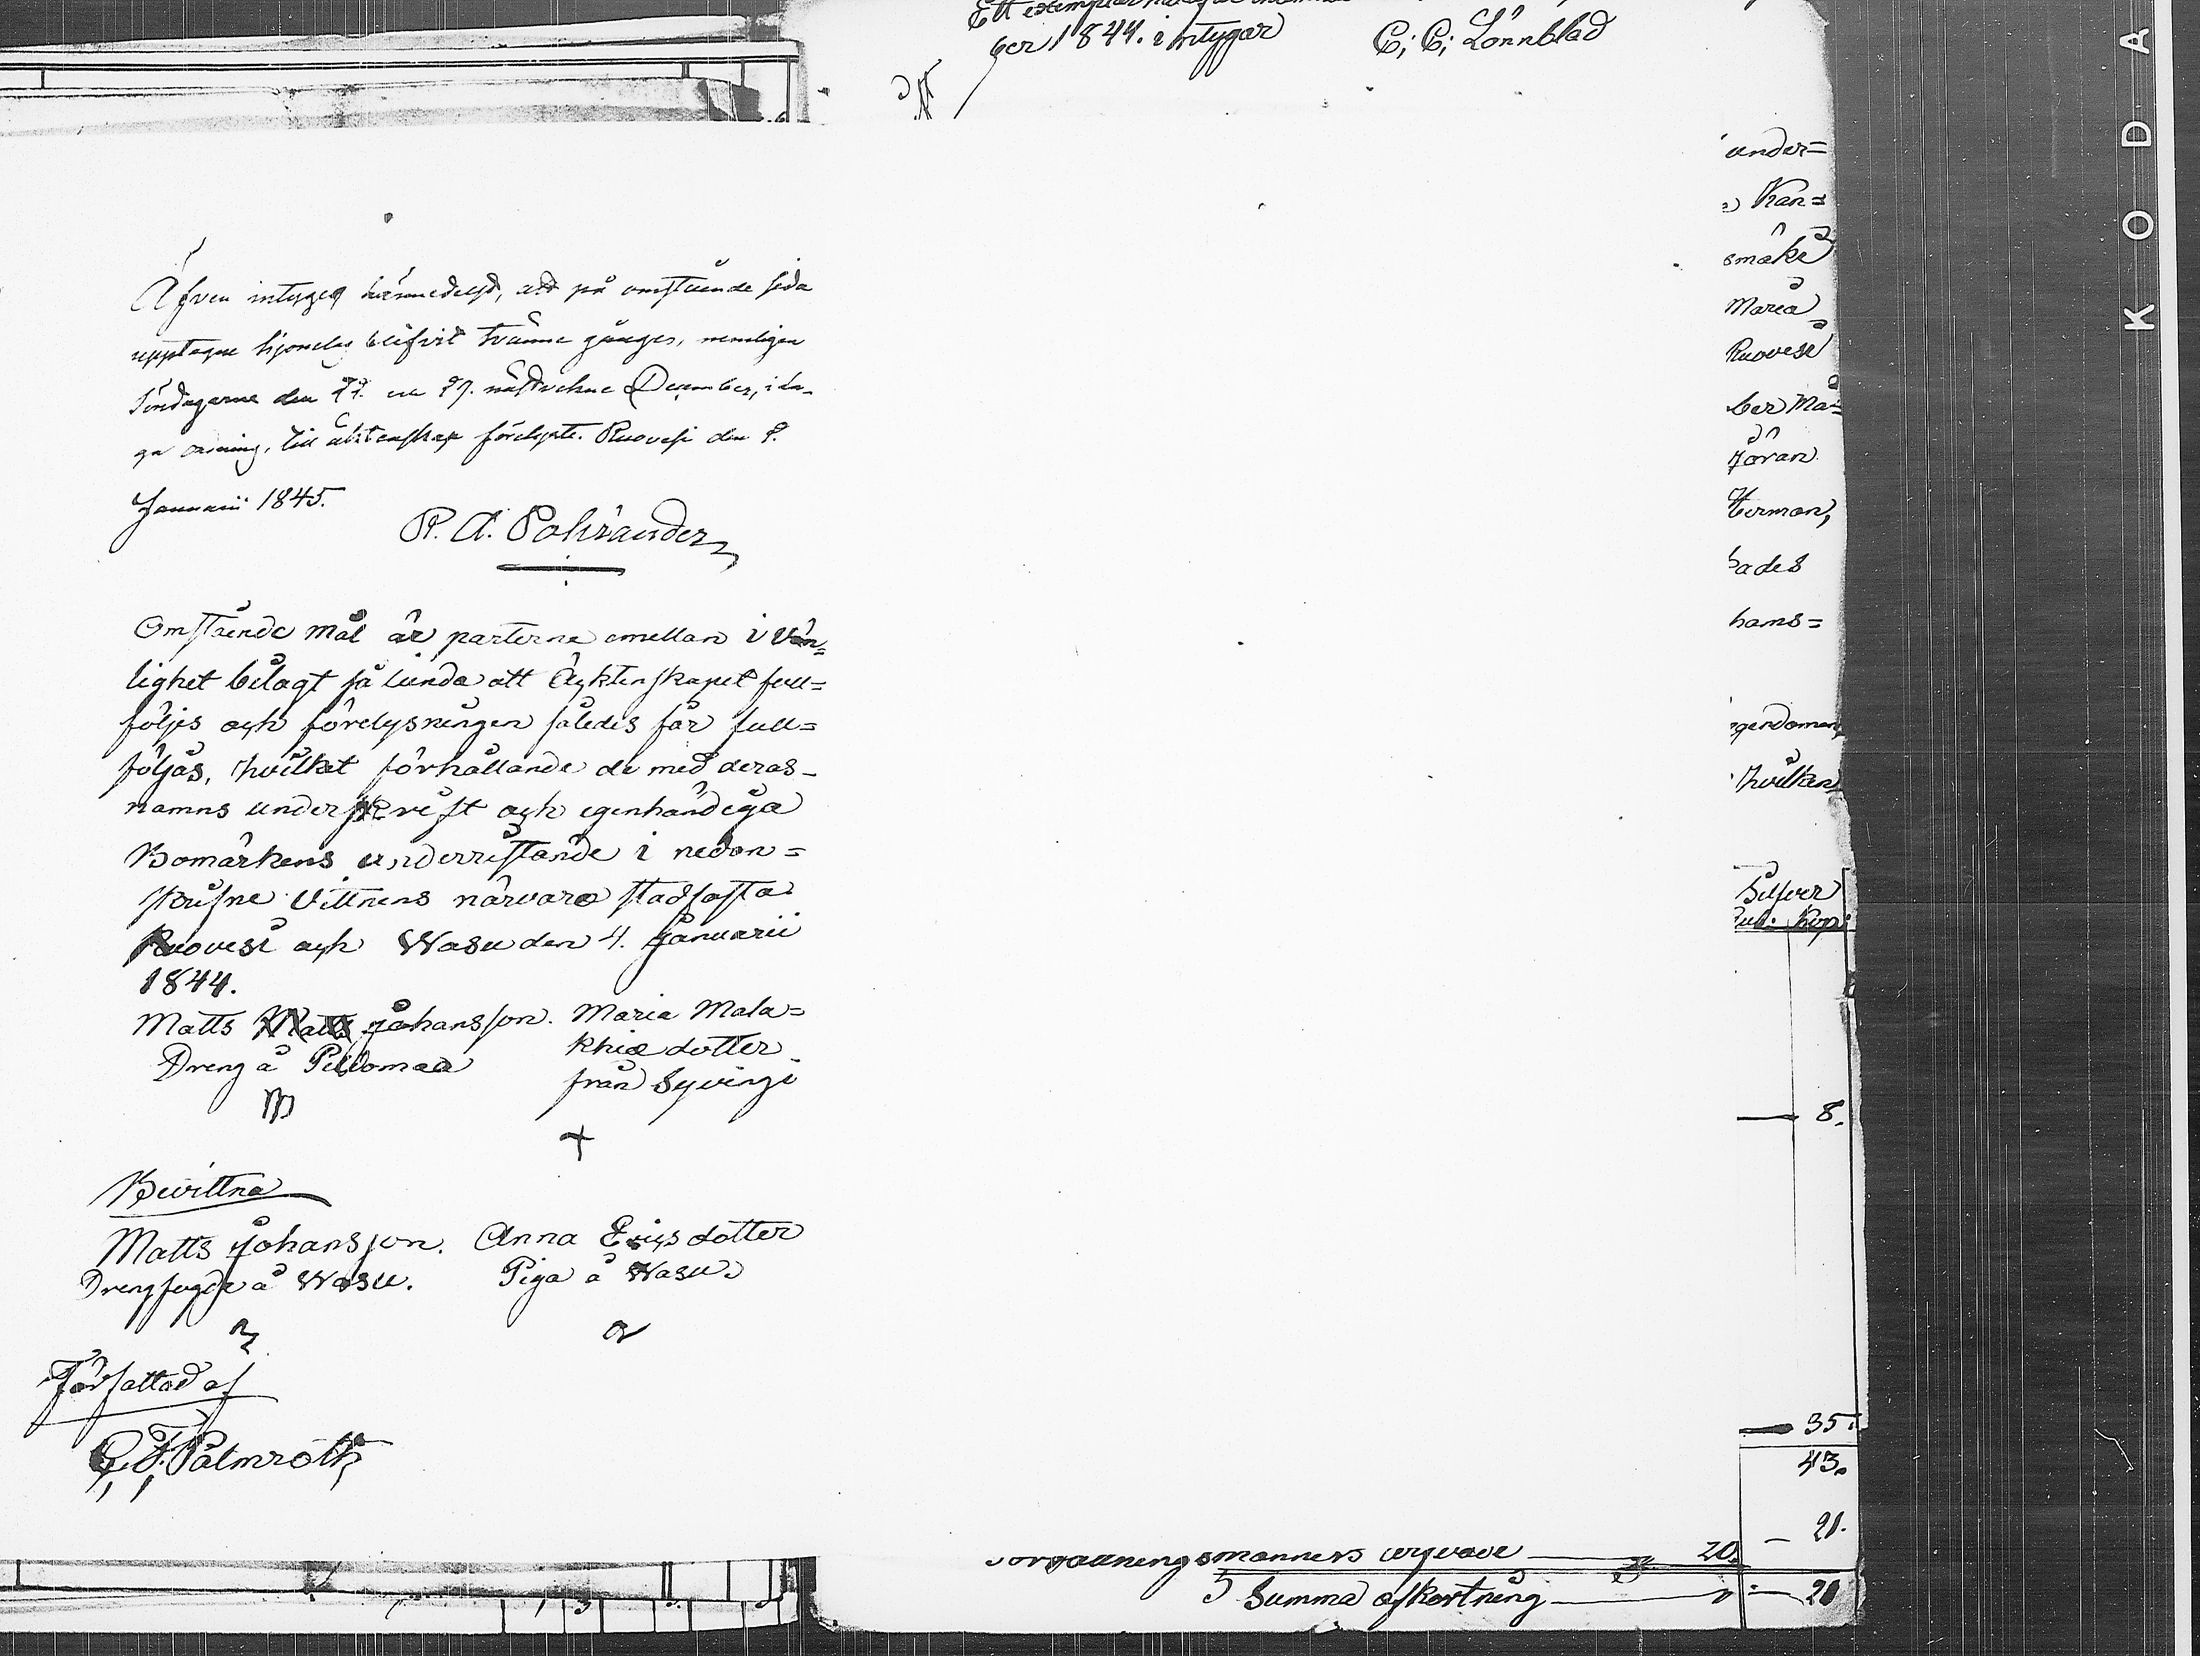 ber 1844. intygar C; C; Lönnblad
Äfven intygas härmedelst, att på omstående sida
upptagne hjonelag blifvit tvänne gånger, nemligen
Söndagarne den 22. och 29. nästvekne December, i la-
ga ordning, till äktenskap förelyste. Ruovesi den 2.
Januarii 1845.
R. A. Pohjander
Omstående mål är parterna emellan i vän=
lighet bilagt så lunda att Äcktenskapet full=
följes och förelysningen således får full=
följas, hvilket förhållande de med deras
namns underskrift och egenhändiga
Bomärkens underristande i nedan=
skrifne Vittnens närvaro stadfästa
Ruovesi och Wasu den 4. Januarii
1844.
Matts Johansson. Maria Mala=
Dreng å Pildomaa khiæ dotter
från Syvingi
Bevittna
Matts Johansson. Anna Ericsdotter
Drengfogde å Wasu. Piga å Wasu.
Författad af
C. F. Palmroth
under=
Kan=
småke
Maria
Ruovesi
ber Ma=
Jöran
Herman,
bades
hans=
gendomen,
hvilken
Silfver
Rub. Kop:
8.
35.
43.
21.
20.
Summa afkortning 20
K O D A